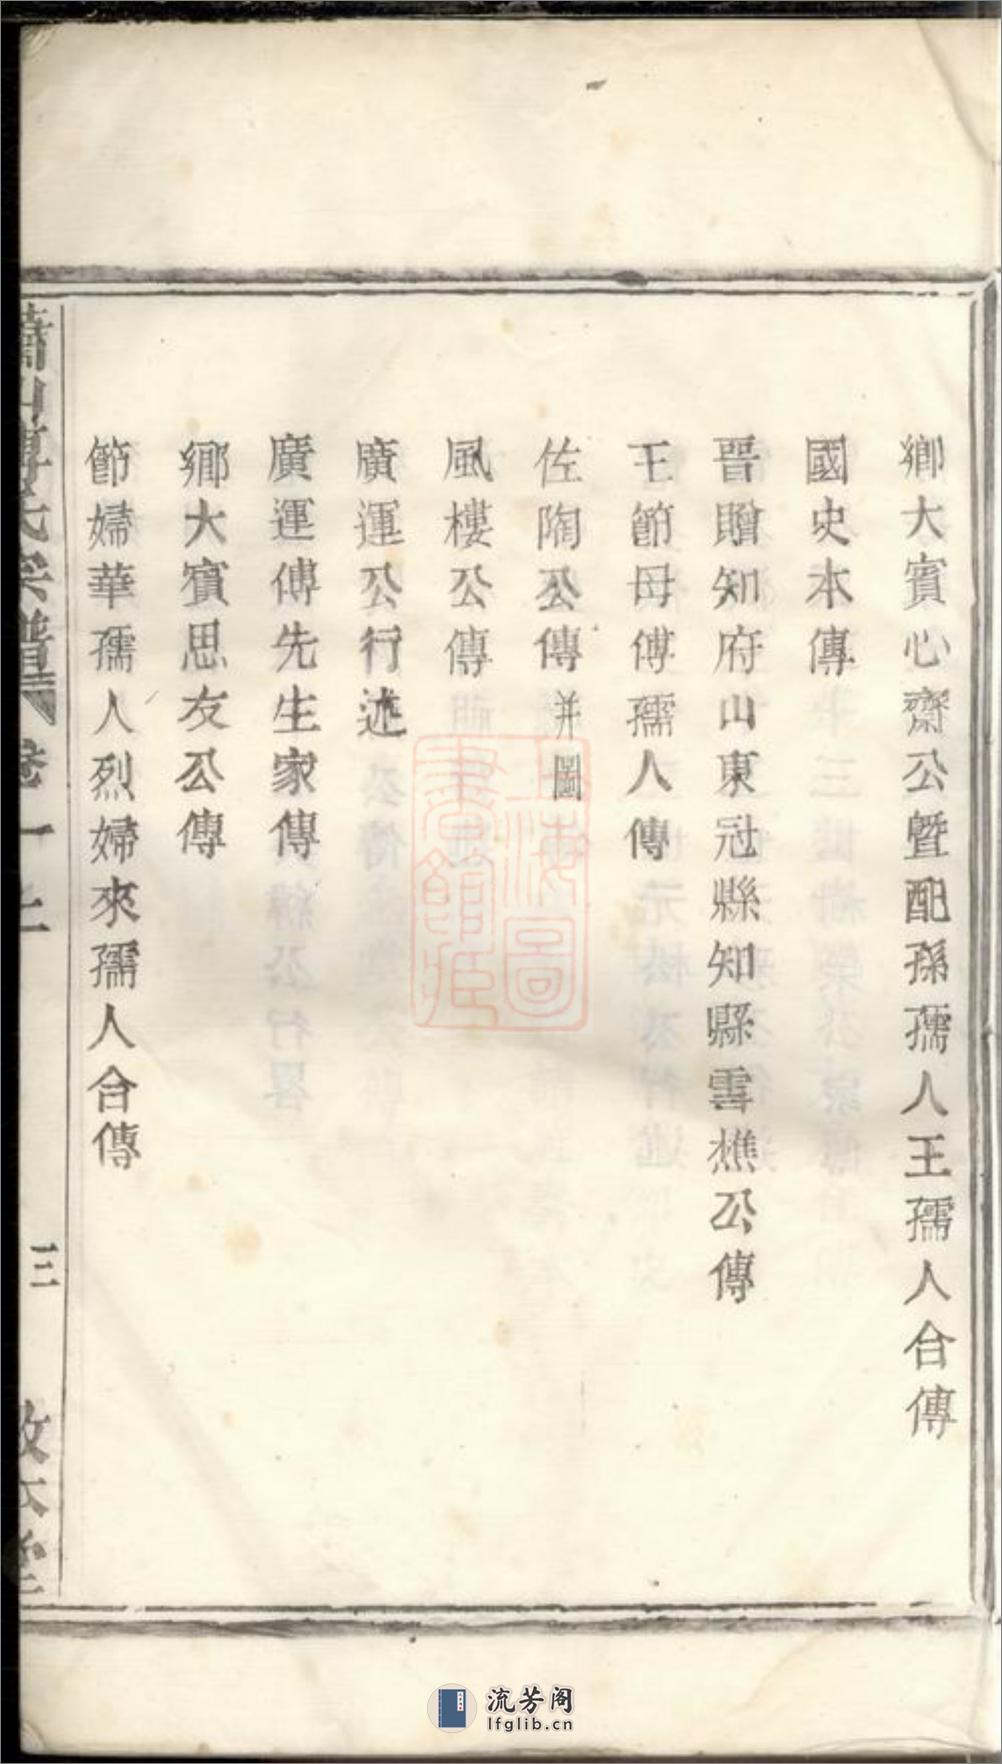 鄉大賓心齋公暨配孫孺人王孺人合傳
國史本傳
晋贈知府山東冠縣知縣雲樵公傳
王節母傅孺人傳
佐陶公傳并圖
風樓公傳
廣運公行述
廣運傅先生家傳
鄉大賓思友公傳
節婦華孺人烈婦來孺人合傳
蕭山傅氏宗譜 卷一上 三
上海圖書館藏
流芳阁
lfglib.cn